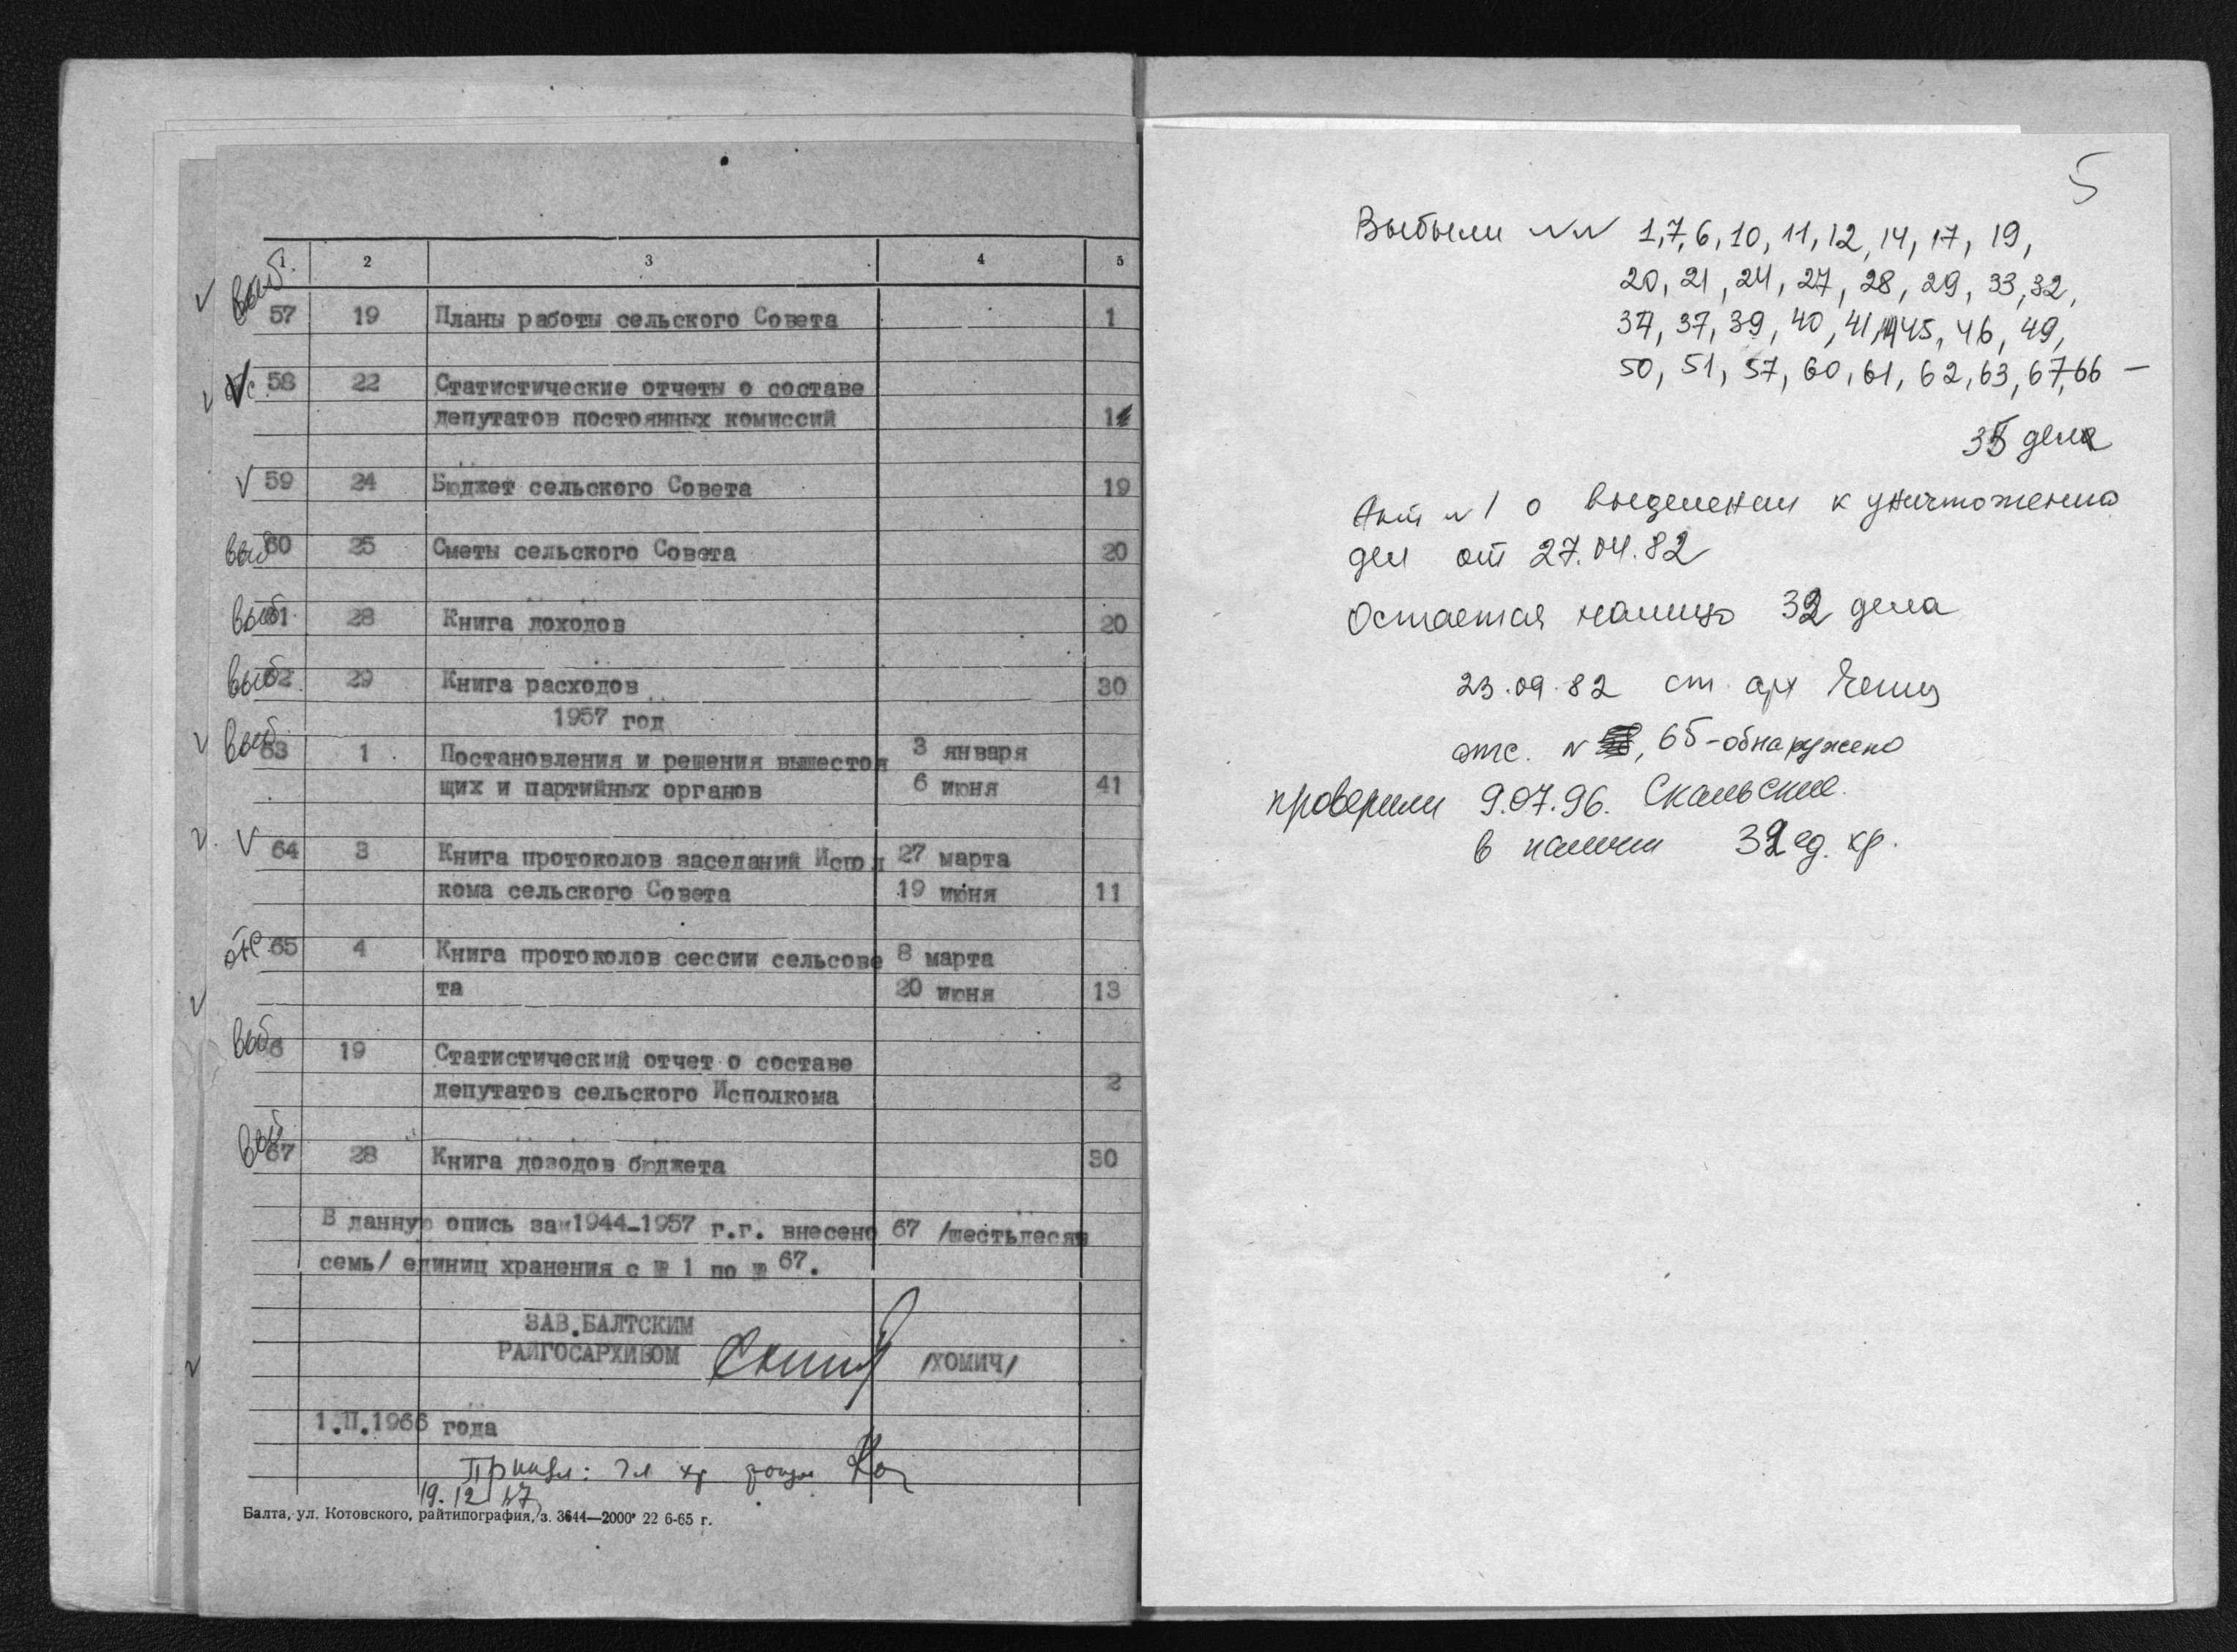 1 2 3 4 5
выб. 57 19 Планы работы сельского Совета 1
58 22 Статистические отчеты о составе
депутатов постоянных комиссий 1
59 24 Бюджет сельского Совета 19
выб 60 25 Сметы сельского Совета 20
выб. 61 28 Книга доходов 20
выб. 62 29 Книга расходов 30
1957 год
выб. 63 1 Постановления и решения вышестоя 3 января
щих и партийных органов 6 июня 41
64 3 Книга протоколов заседаний Испол 27 марта
кома сельского Совета 19 июня 11
отс. 65 4 Книга протоколов сессии сельсове 8 марта
та 20 июня 13
выб 6 19 Статистический отчет о составе
депутатов сельского Исполкома 2
выб 67 28 Книга дозодов бюджета 30
В данную опись за 1944-1957 г.г. внесено 67 /шестьдесят
семь/ единиц хранения с № 1 по № 67.
ЗАВ.БАЛТСКИМ
РАЙГОСАРХИВОМ /ХОМИЧ/
1.II.1966 года
19.12
Балта, ул. Котовского, райтипография, з. 3644—2000 22 6-65 г.
5
Выбыли №№ 1,7,6,10,11,12,14,17,19,
20,21,24,27,28,29,33,32,
37,39,40,41,45,46,49,
50,51,57,60,61,62,63,67,66 —
35 дела
Акт №1 о выделении к уничтожению
дел от 27.04.82
Остается налицо 32 дела
23.09.82 ст. арх
отс. № 65-обнаружено
проверили 9.07.96. Скальские.
в наличии 32 ед. хр.